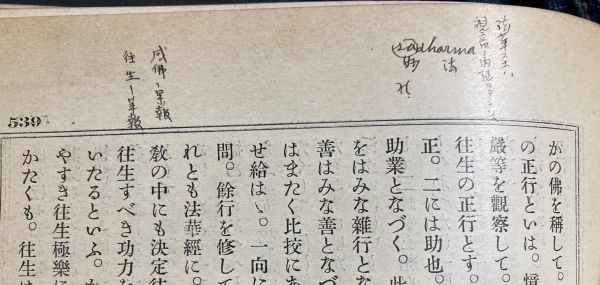 法華
dharma
法
妙
成佛、果報
往生ー華報
539
かの佛を稱して。
の正行といは。憶
嚴等を觀察して。
往生の正行とす。
正。二には助也。
助業となづく。此
をはみな雜行とな
善はみな善となづ
はまたく比挍にあ
ぜ給はゝ。一向に
問。餘行を修して
れとも法華經に。
教の中にも決定往
往生すべき功力な
いたるといふ。か
やすき往生極樂に
かたくも。往生は